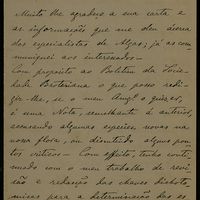 Muito lhe agradeço a sua carta e
as informações que me deu acerca
dos especialistas de Algas; já as com-
muniquei aos interessados.
Com proposito ao Boletim da Socie-
dade Broteriana o que posso redi-
gir-lhe, se o meu Amgº o quizer,
é uma Nota, semelhante á anterior,
accusando algumas especies novas na
nossa flora, ou discutindo alguns pon-
tos criticos. Com effeito, tenho conti-
nuado com o meu trabalho de revi-
zão e redacção das chaves dichoto-
micas para a determinação das es